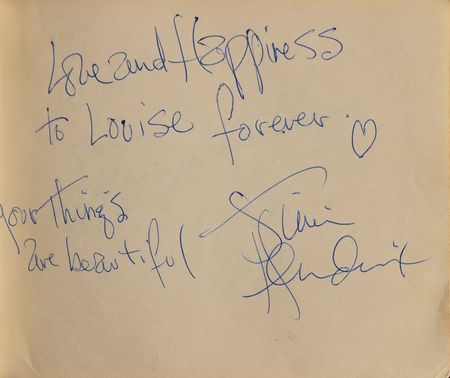 Love and Happiness
to Louise forever.
your thing's
are beautiful
Jimi
Hendrix